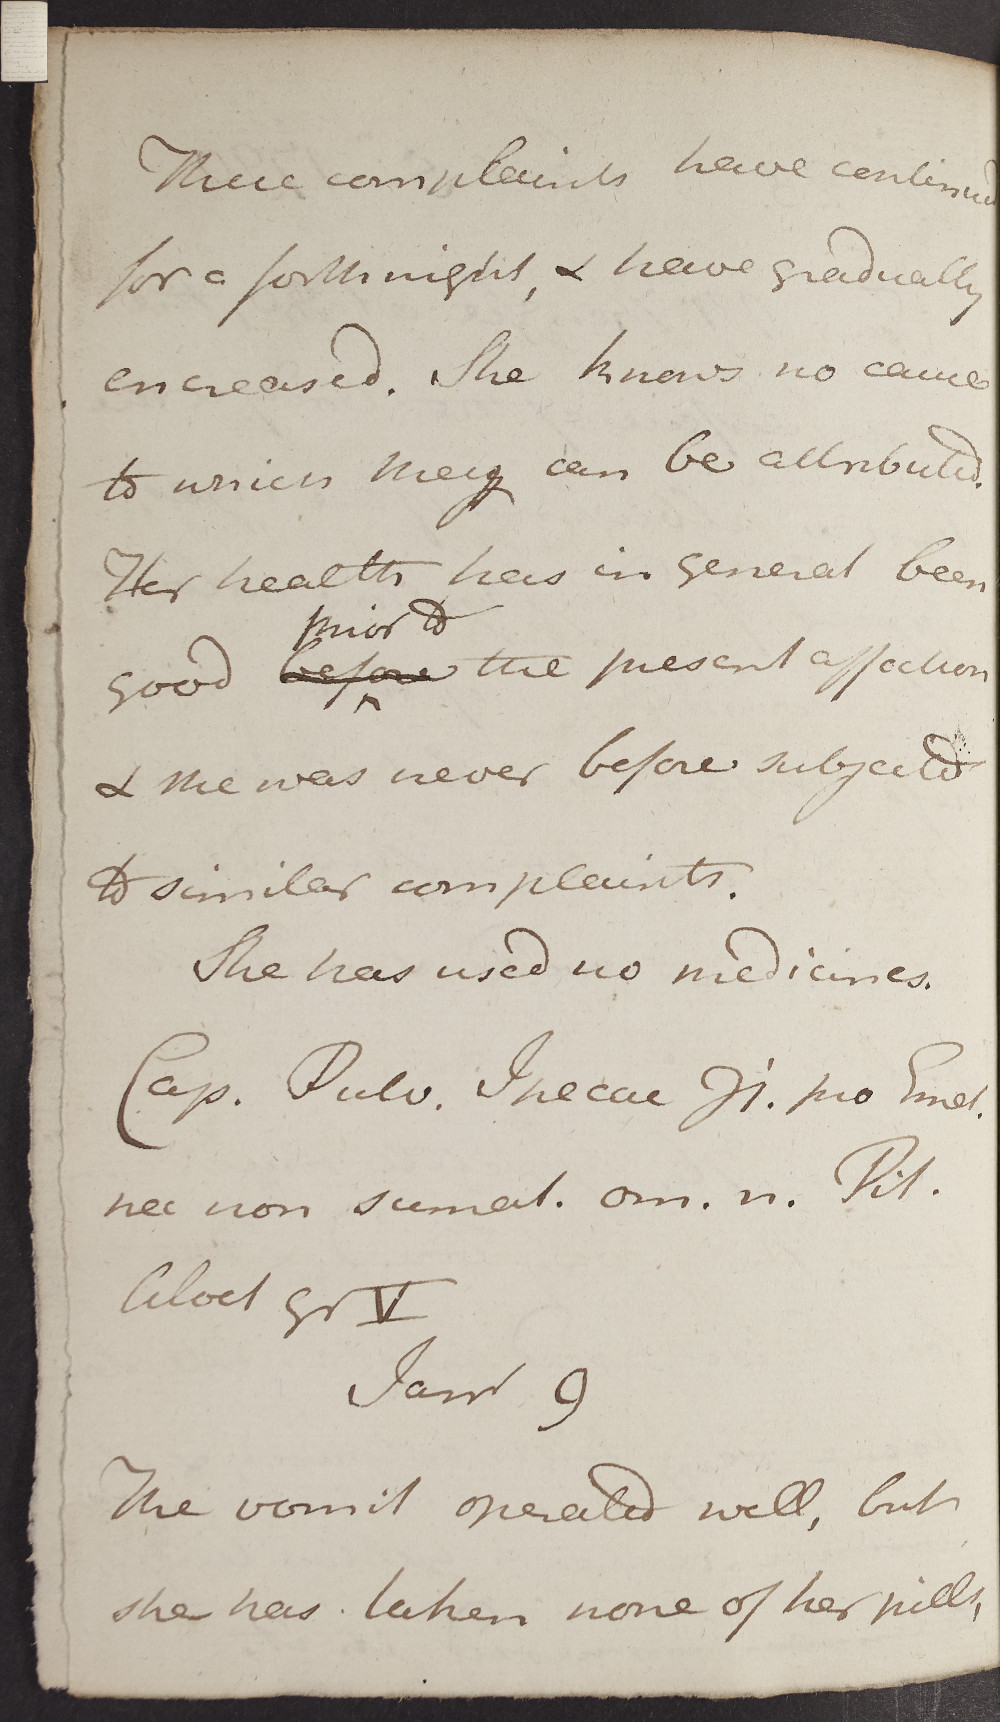 These complaints have continued
for a forthnight, & have gradually
encreased. She knows no cause
to which they can be attributed.
Her health has in general been
prior to
good before the present affection
& she was never before subjected
to similar complaints.
She has used no medicines.
Cap. Pulv. Ipecac ℈i. pro Emet.
nec non sumat. om. n. Pil.
Aloet gr V
Janr 9
The vomit operated well, but
she has taken none of her pills,